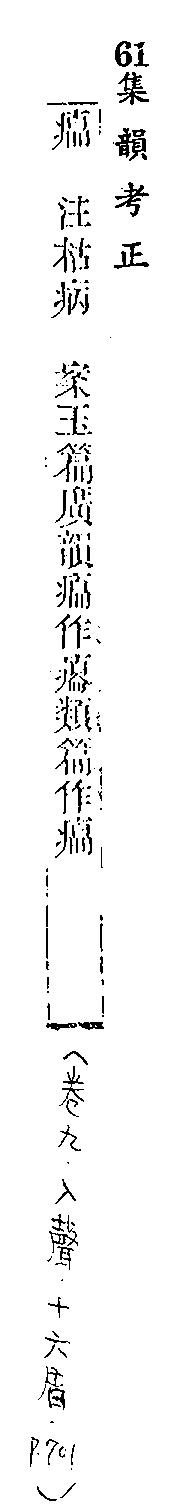 61集韻考正
注枯病 案玉篇廣韻作類篇作
(卷九.入聲.十六屑.P.701)